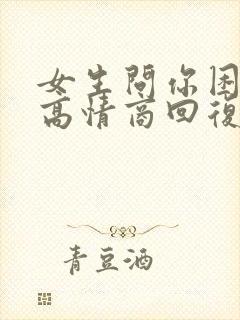 女生問你困
高情商回復
青豆酒